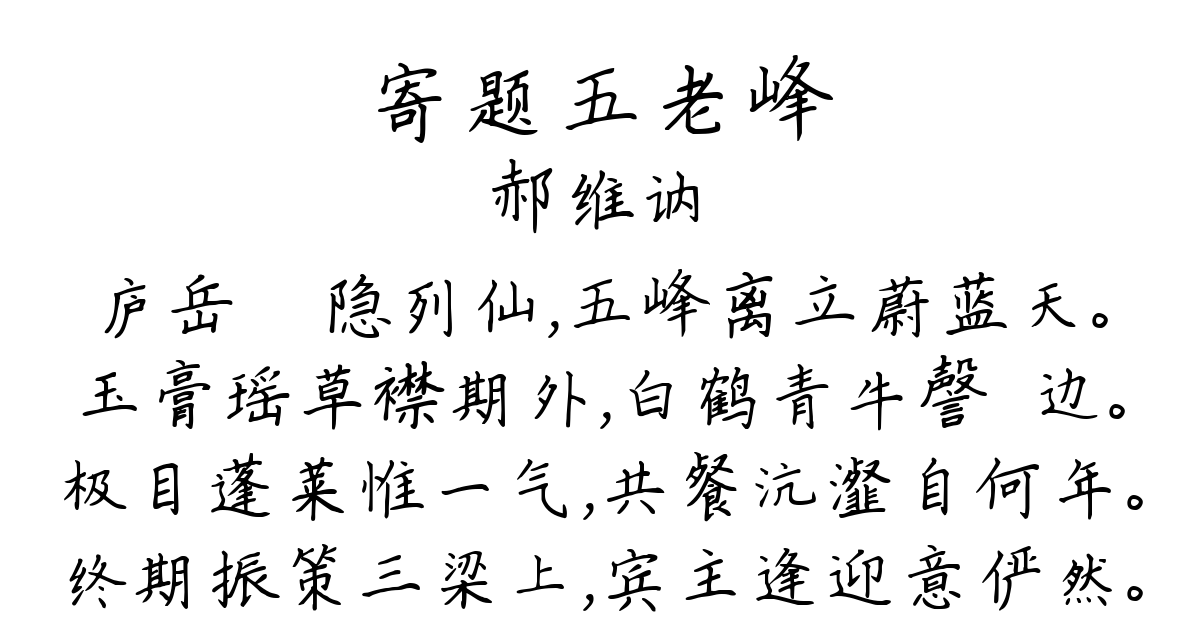 寄题五老峰
郝维讷
庐岳 隐列仙,五峰离立蔚蓝天。
玉膏瑶草襟期外,白鹤青牛謦 边。
极目蓬莱惟一气,共餐沆瀣自何年。
终期振策三梁上,宾主逢迎意俨然。